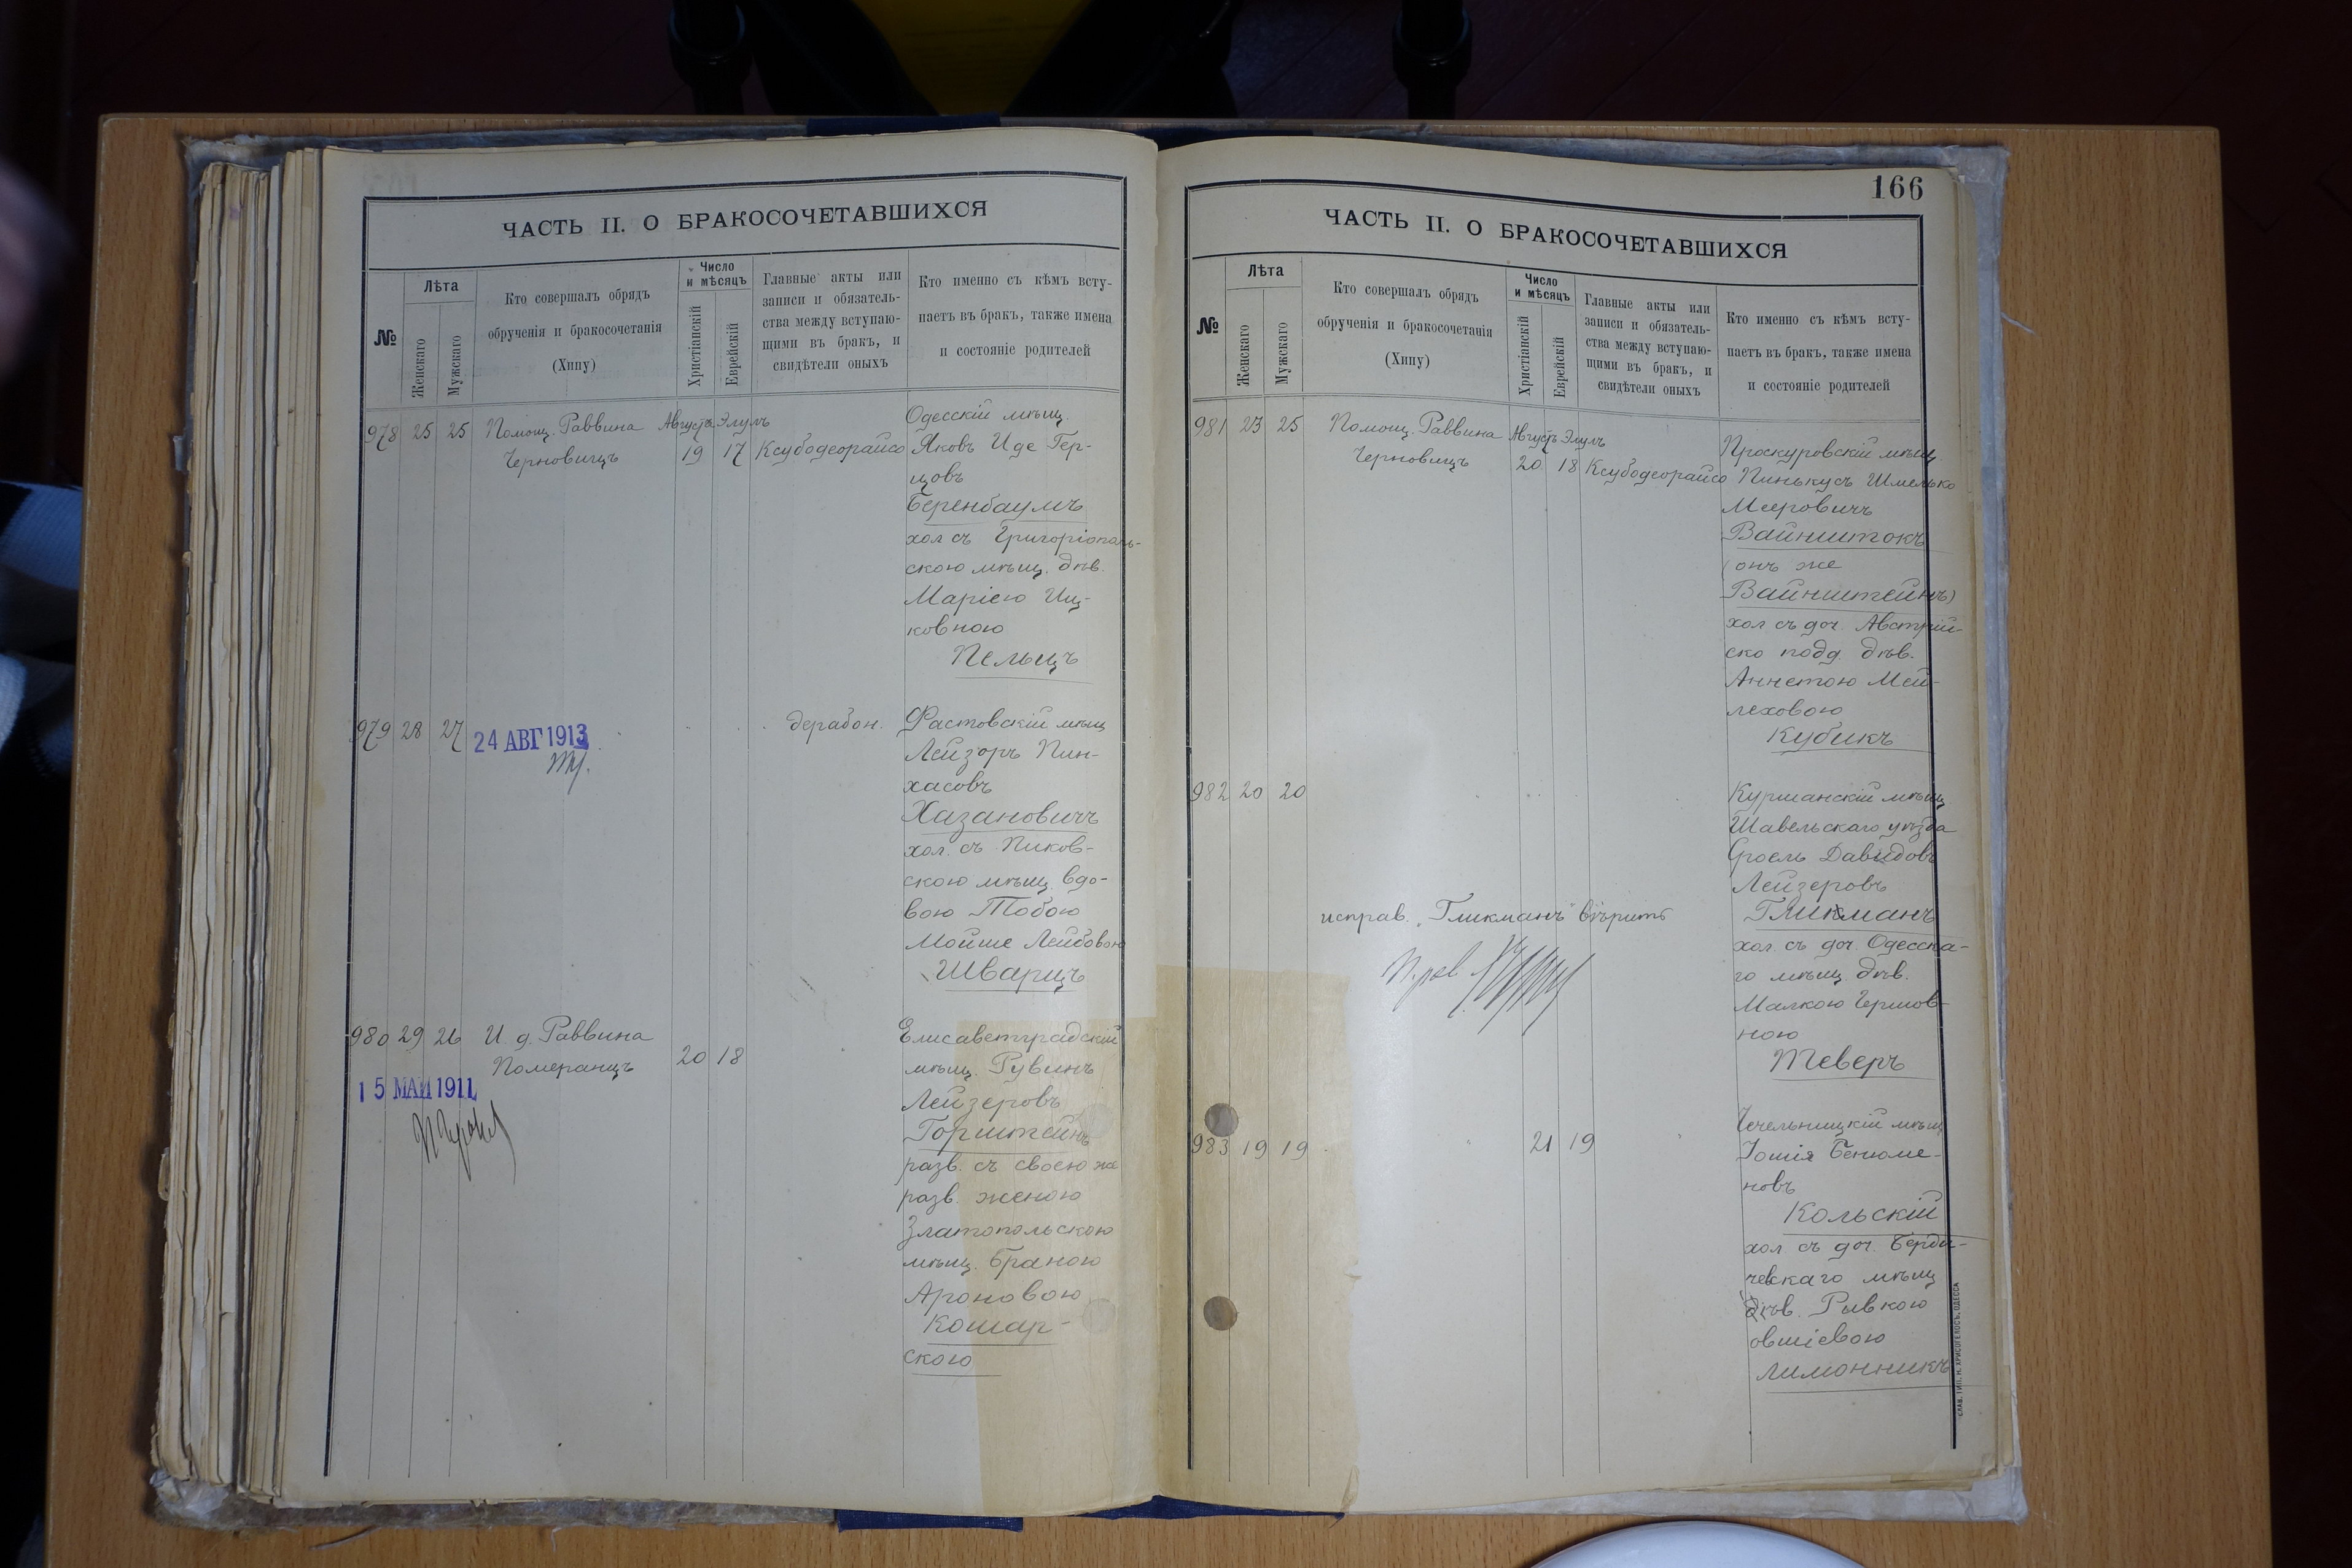 ЧАСТЬ II. О БРАКОСОЧЕТАВШИХСЯ
№
Лѣта
Женскаго
Мужскаго
Кто совершалъ обрядъ
обрученія и бракосочетанія
(Хипу)
Число
и мѣсяцъ
Христіанскій
Еврейскій
Главные акты или
записи и обязатель-
ства между вступаю-
щими въ бракъ, и
свидѣтели оныхъ
Кто именно съ кѣмъ всту-
паетъ въ бракъ, также имена
и состояніе родителей
978 25 25 Помощ. Раввина Августъ Элулъ
Черновицъ 19 17 Ксубодеорайсо
Одесскій мѣщ.
Яковъ Иде Гер-
цовъ
Беренбаумъ
хол съ Григоріополь-
скою мѣщ. дѣв.
Маріею Иц-
ковною
Пельцъ
979 28 27 дерабон.
24 АВГ 1913
Фастовскій мѣщ
Лейзоръ Пин-
хасовъ
Хазановичъ
хол. съ Пиков-
скою мѣщ. вдо-
вою Тобою
Мойше Лейбовою
Шварцъ
980 29 26 И. д. Раввина
Померанцъ 20 18
15 МАЙ 1911
Елисаветградскій
мѣщ. Рувинъ
Лейзеровъ
Горштейнъ
разв. съ своею же
разв. женою
Златопольскою
мѣщ. Браною
Ароновою
Кошар-
скою
166
ЧАСТЬ II. О БРАКОСОЧЕТАВШИХСЯ
№
Лѣта
Женскаго
Мужскаго
Кто совершалъ обрядъ
обрученія и бракосочетанія
(Хипу)
Число
и мѣсяцъ
Христіанскій
Еврейскій
Главные акты или
записи и обязатель-
ства между вступаю-
щими въ бракъ, и
свидѣтели оныхъ
Кто именно съ кѣмъ всту-
паетъ въ бракъ, также имена
и состояніе родителей
981 23 25 Помощ. Раввина Августъ Элулъ
Черновицъ 20 18 Ксубодеорайсо
Проскуровскій мѣщ
Пинькусъ Шмелько
Мееровичъ
Вайнштокъ
(онъ же
Вайнштейнъ)
хол съ доч. Австрій-
ско подд. дѣв.
Аннетою Мей-
леховою
Кубикъ
982 20 20
Куршанскій мѣщ
Шавельскаго уѣзда
Сроель Давидовъ
Лейзеровъ
Гликманъ
исправ. "Гликманъ" вѣрить
хол. съ доч. Одесска-
го мѣщ дѣв.
Малкою Гершов-
ною
Теверъ
983 19 19 21 19
Чечельницкій мѣщ
Іошія Бенюме-
новъ
Кольскій
хол съ доч. Верди-
чевскаго мѣщ
дѣв. Рывкою
овшіевою
Лимонникъ
СЛАВ. ТИП. Н. ХРИСОГЕЛОСЪ, ОДЕССА